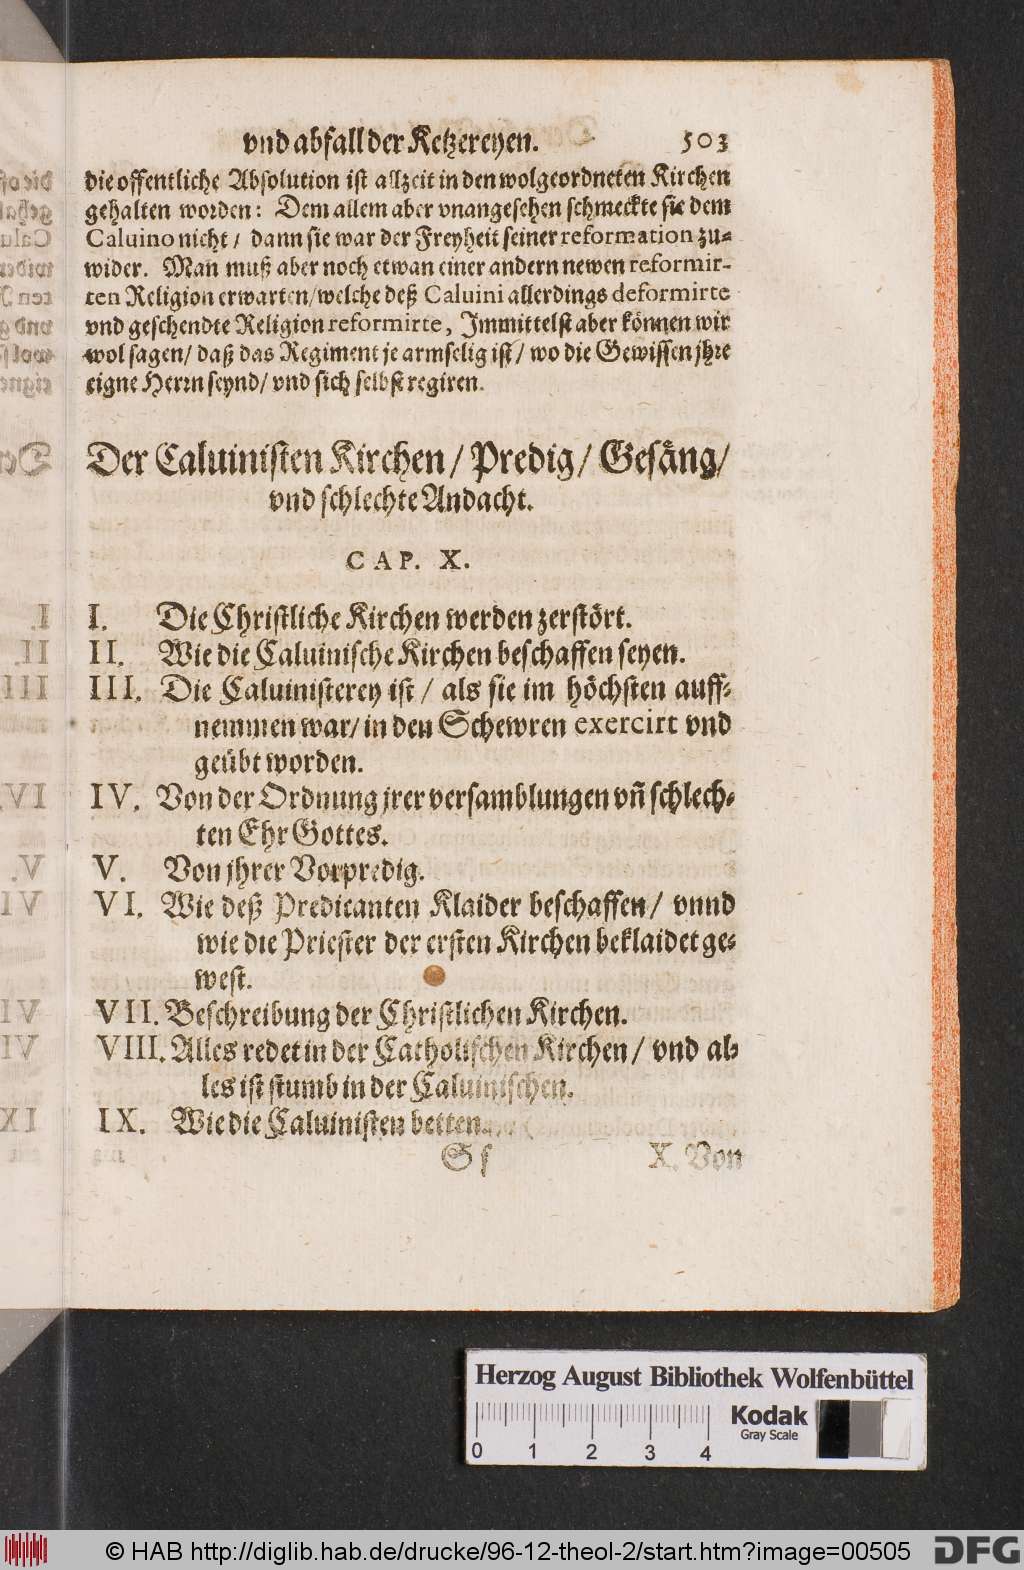 vnd abfall der Ketzereyen. 503
die offentliche Absolution ist allzeit in den wolgeordneten Kirchen
gehalten worden: Dem allem aber vnangesehen schmeckte sie dem
Caluino nicht / dann sie war der Freyheit seiner reformation zu-
wider. Man muß aber noch etwan einer andern newen reformir-
ten Religion erwarten / welche deß Caluini allerdings deformirte
vnd geschendte Religion reformirte, Immittelst aber können wir
wol sagen / daß das Regiment je armselig ist / wo die Gewissen jhre
eigne Herrn seynd / vnd sich selbst regiren.
Der Caluinisten Kirchen / Predig / Gesäng /
vnd schlechte Andacht.
CAP. X.
I. Die Christliche Kirchen werden zerstört.
II. Wie die Caluinische Kirchen beschaffen seyen.
III. Die Caluinisterey ist / als sie im höchsten auff-
nemmen war / in den Schewren exercirt vnd
geübt worden.
IV. Von der Ordnung jrer versamblungen vñ schlech-
ten Ehr Gottes.
V. Von jhrer Vorpredig.
VI. Wie deß Predicanten Klaider beschaffen / vnnd
wie die Priester der ersten Kirchen beklaidet ge-
west.
VII. Beschreibung der Christlichen Kirchen.
VIII. Alles redet in der Catholischen Kirchen / vnd al-
les ist stumb in der Caluinischen.
IX. Wie die Caluinisten betten.
Sf X. Von
Herzog August Bibliothek Wolfenbüttel
Kodak
Gray Scale
0 1 2 3 4
© HAB http://diglib.hab.de/drucke/96-12-theol-2/start.htm?image=00505
DFG